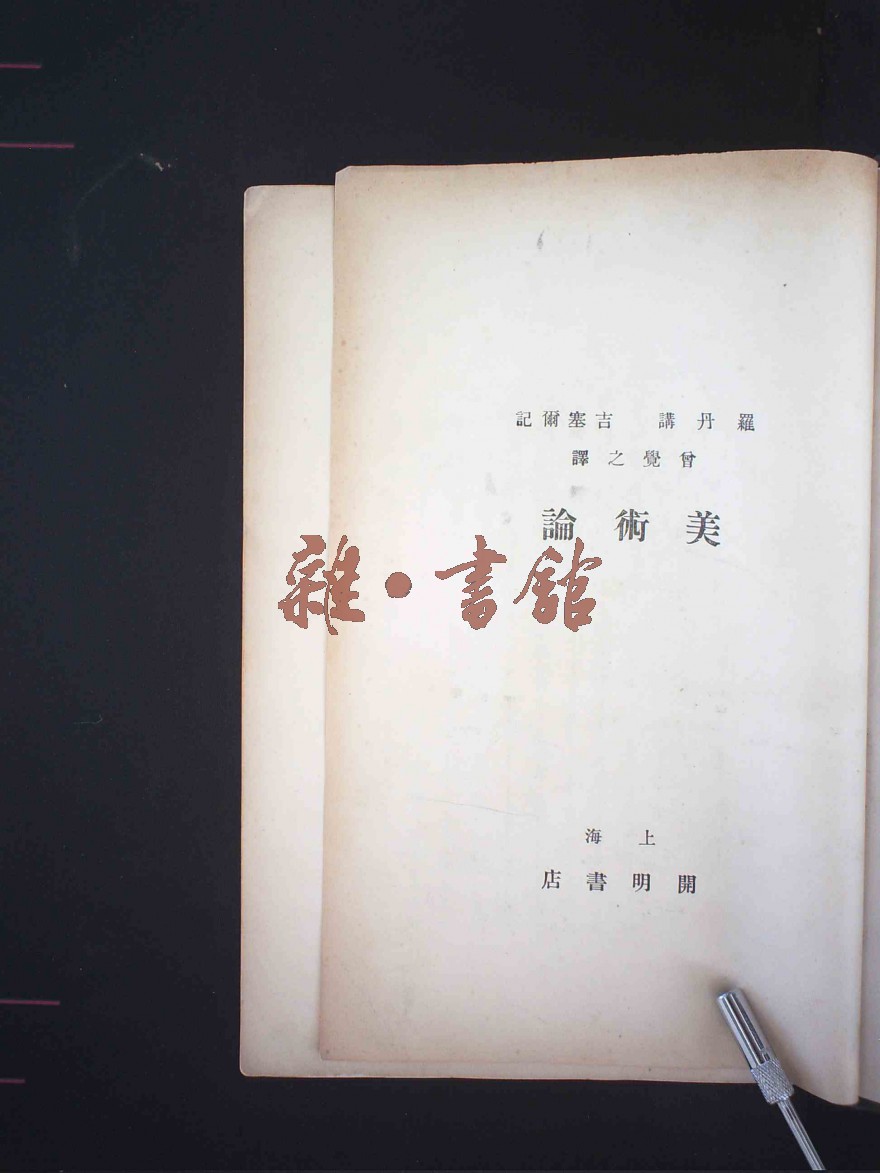 羅丹講 吉塞爾記
曾覺之譯
美術論
雜·書館
上海
開明書店